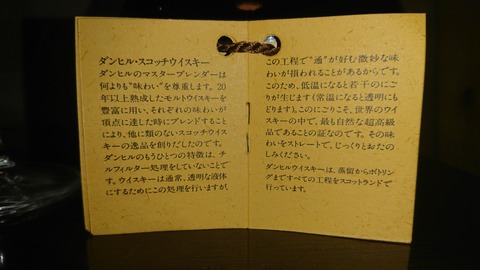 ダンヒル・スコッチウイスキー
ダンヒルのマスターブレンダーは
何よりも"味わい"を尊重します。20
年以上熟成したモルトウイスキーを
豊富に用い、それぞれの味わいが
頂点に達した時にブレンドすること
により、他に類のないスコッチウイス
キーの逸品を創りだしたのです。
ダンヒルのもうひとつの特徴は、チ
ルフィルター処理をしていないことで
す。ウイスキーは通常、透明な液体
にするためにこの処理を行いますが、
この工程で"通"が好む微妙な味
わいが損われることがあるからです。
このため、低温になると若干のにご
りが生じます(常温になると透明にも
どります)。このにごりこそ、世界のウイ
スキーの中で、最も自然な超高級
品であることの証なのです。その味
わいをストレートで、じっくりとおたの
しみください。
ダンヒルウイスキーは、蒸留からボトリン
グまですべての工程をスコットランドで
行っています。